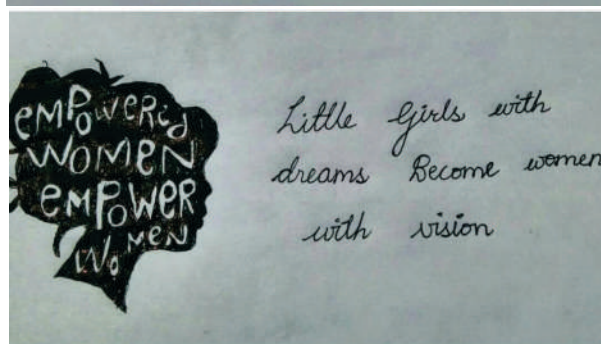 empowered
women
empower
women
Little Girls with
dreams Become women
with vision